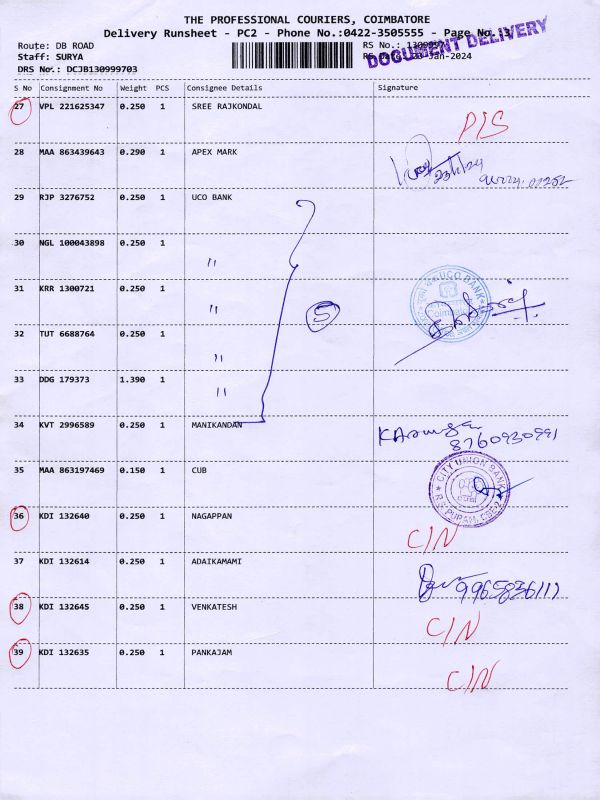 THE PROFESSIONAL COURIERS, COIMBATORE
Delivery Runsheet - PC2 - Phone No.:0422-3505555 - Page No. 3
DOCUMENT DELIVERY
Route: DB ROAD
RS No.:
Staff: SURYA
RS Date: 23-Jan-2024
DRS No.: DCJB130999703
S No Consignment No Weight PCS Consignee Details Signature
27 VPL 221625347 0.250 1 SREE RAJKONDAL
28 MAA 863439643 0.290 1 APEX MARK 23/1/24
29 RJP 3276752 0.250 1 UCO BANK
30 NGL 100043898 0.250 1 "
31 KRR 1300721 0.250 1 " 5 UCO BANK
32 TUT 6688764 0.250 1 "
33 DDG 179373 1.390 1 "
34 KVT 2996589 0.250 1 MANIKANDAN 8760930991
35 MAA 863197469 0.150 1 CUB CITY UNION BANK R.S. PURAM, CBE-2
36 KDI 132640 0.250 1 NAGAPPAN C/N
37 KDI 132614 0.250 1 ADAIKAMAMI 9965836111
38 KDI 132645 0.250 1 VENKATESH C/N
39 KDI 132635 0.250 1 PANKAJAM C/N